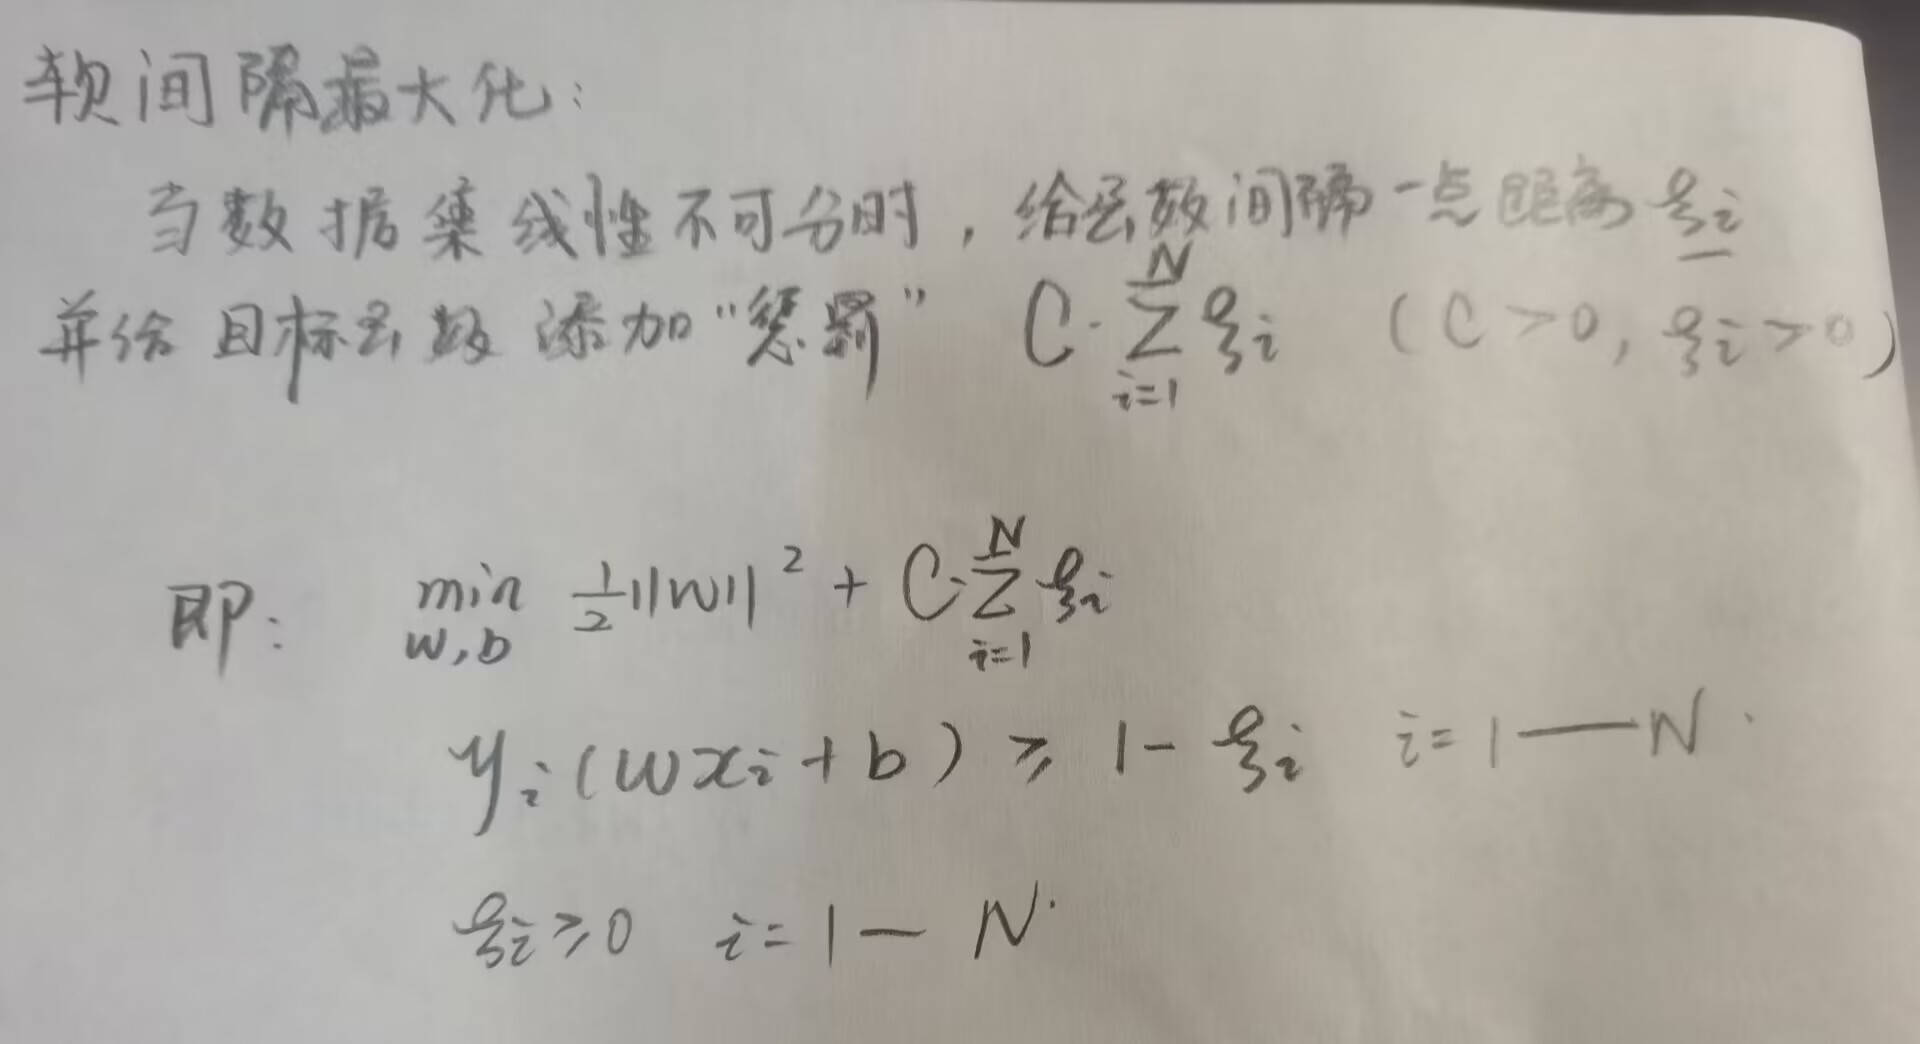 软间隔最大化：
当数据集线性不可分时，给函数间隔一点距离 ξi
并给目标函数添加“惩罚” C·∑_{i=1}^{N} ξi （C＞0，ξi＞0）
即： min_{w,b} 1/2||w||² + C·∑_{i=1}^{N} ξi
yi(wxi+b) ≥ 1-ξi i=1—N.
ξi≥0 i=1—N.